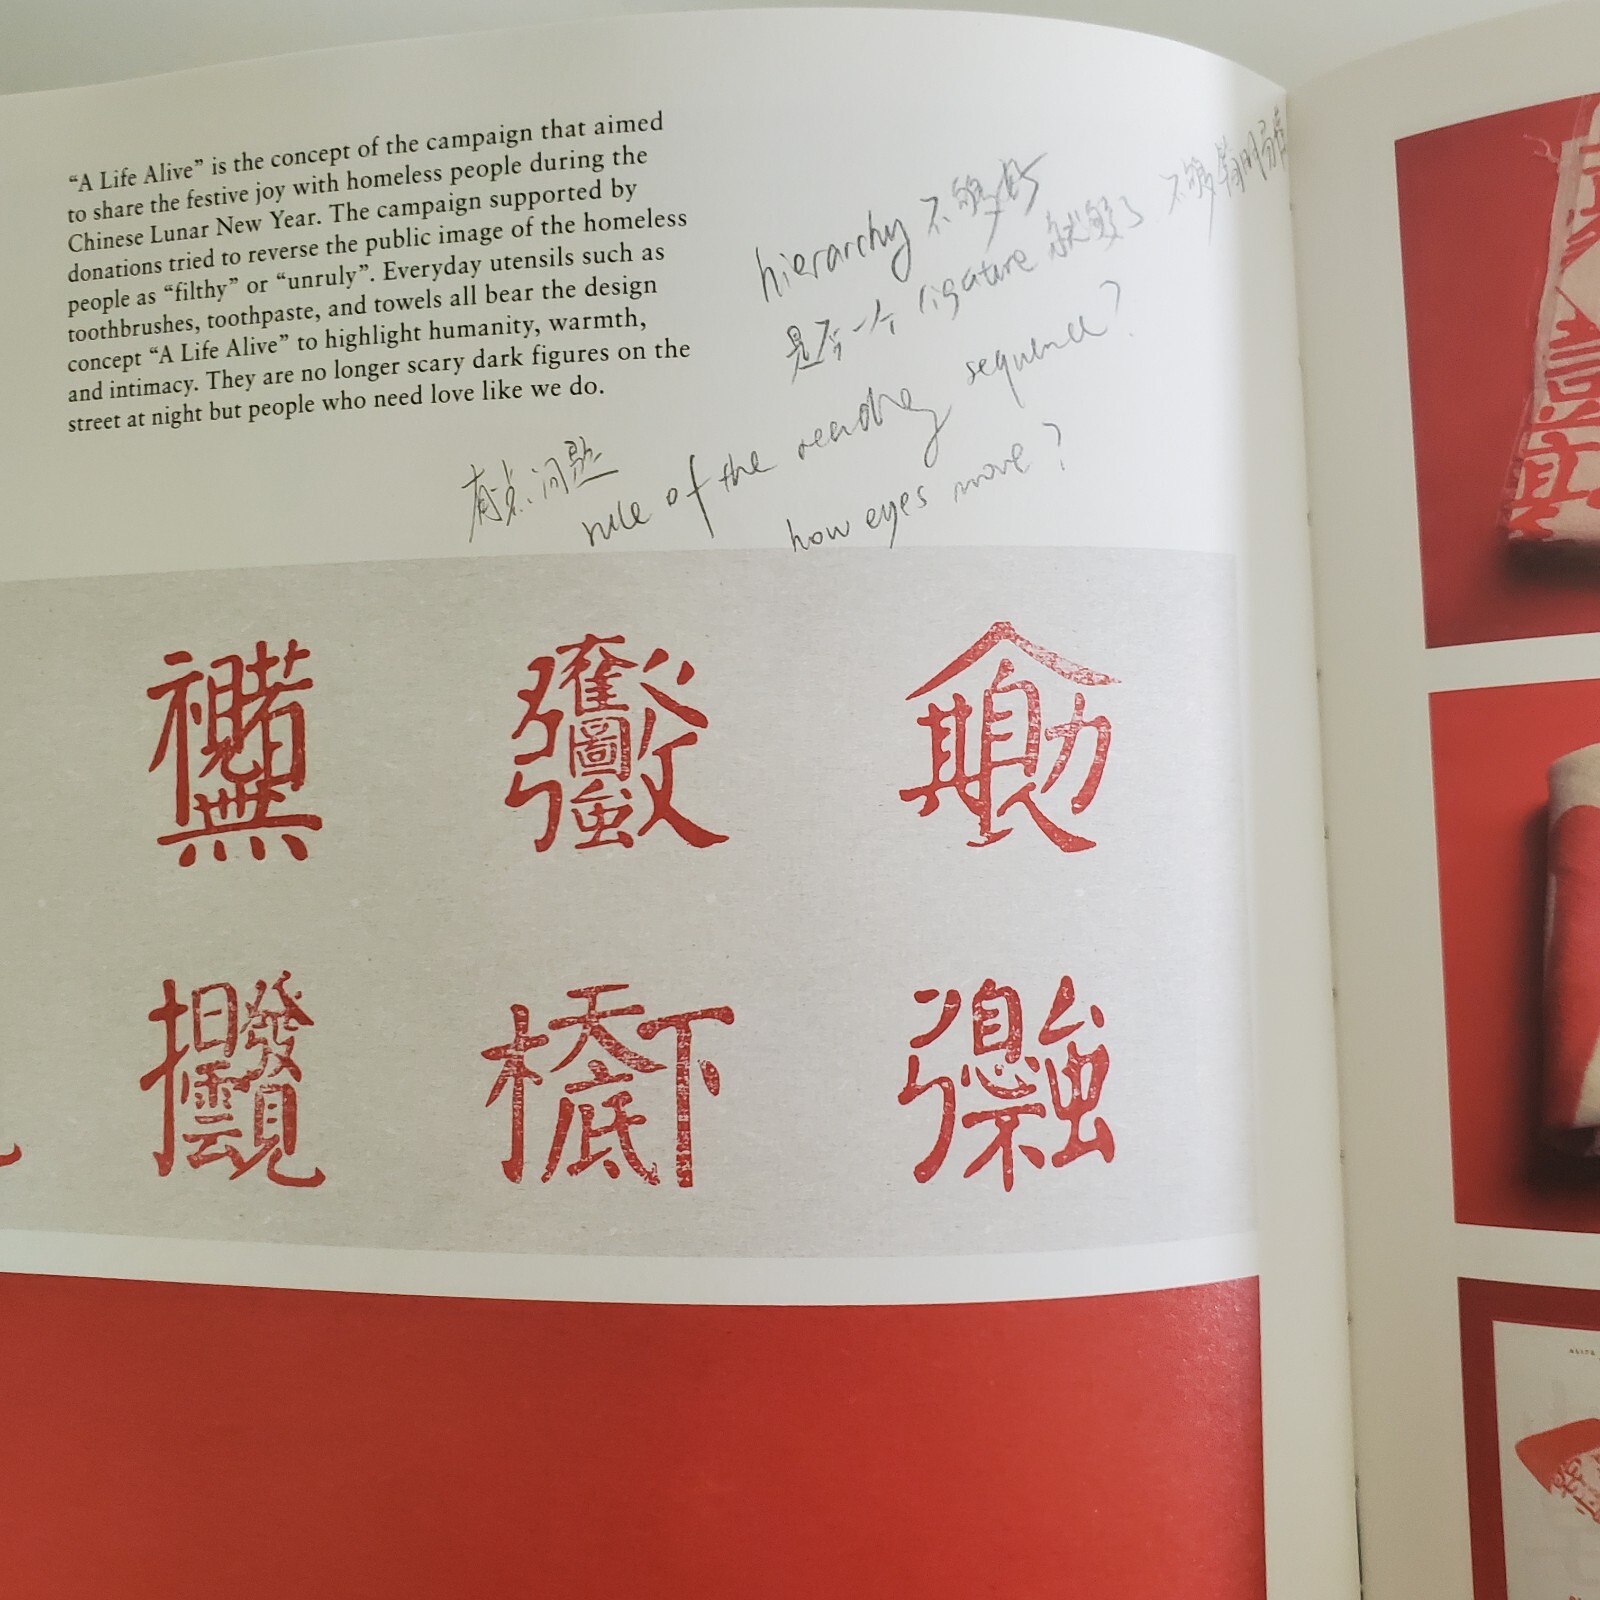 “A Life Alive” is the concept of the campaign that aimed
to share the festive joy with homeless people during the
Chinese Lunar New Year. The campaign supported by
donations tried to reverse the public image of the homeless
people as “filthy” or “unruly”. Everyday utensils such as
toothbrushes, toothpaste, and towels all bear the design
concept “A Life Alive” to highlight humanity, warmth,
and intimacy. They are no longer scary dark figures on the
street at night but people who need love like we do.
hierarchy 不够好
是否一个 ligature 就够了 不够
有点问题
rule of the reading sequence?
how eyes move?